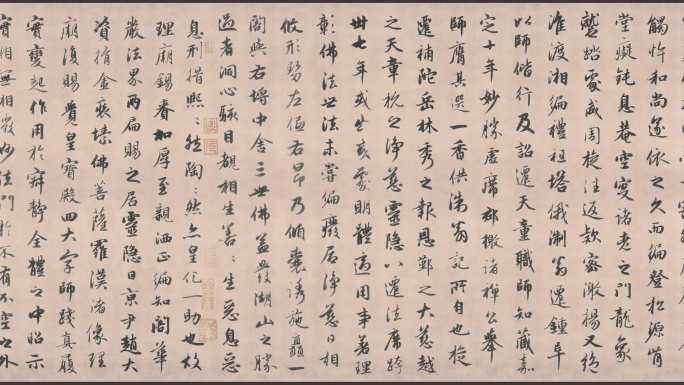 觸忤和尚遂依之久而徧登松源肯
堂癡鈍息菴空叟諸老之門龍象
蹴踏處咸周旋汪返款密激揚又絕
淮渡湘徧禮祖塔俄淛翁遷鍾阜
以師偕行及詔遷天童職師知藏嘉
定十年妙勝虛席郡檄諸禪公舉
師膺其選一香供淛翁記所自也旋
遷補陀岳林秀之報恩鄞之大慈越
之天章杭之淨慈靈隱八遷法席跨
卅七年或生或明體適用事著理
彰佛法世法未嘗偏廢居淨慈日相
攸形勢左低右昂乃傾囊誘施矗一
閣與右埒中舍三世佛蓋發湖山之勝
過者洞心駭目覩相生善〻生惡息惡
息刑措熙〻然陶〻然亦皇化一助也故
理廟錫眷加厚至親洒徧知閣華
嚴法界兩扁賜之居靈隱日京尹趙大
資捐金裝塐佛菩薩羅漢諸像理
廟復賜覺皇寶殿四大字師踐真履
實變起作用於寂靜全體之中昭示
實相無相微妙法門於不有不空之外